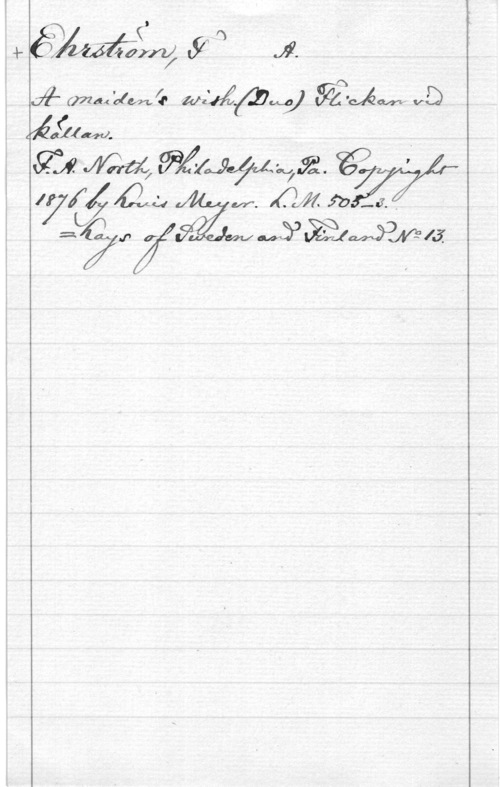 + Ehrström, F A.
A maiden's wish. (Duo) Flickan vid
källan.
F. A. North, Philadelphia, Pa. Copyright
1876 by Louis Meyer. L. M. 505_3.
= Lays of Sweden and Finland Nº 13.